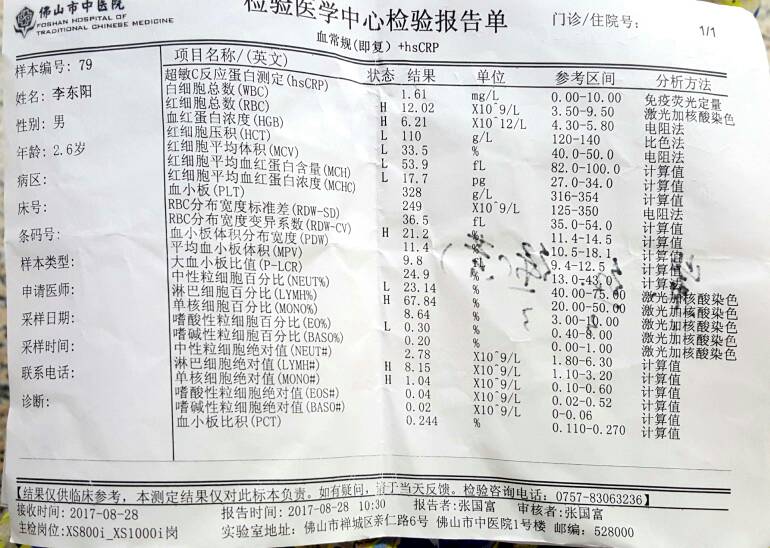 佛山市中医院
FOSHAN HOSPITAL OF
TRADITIONAL CHINESE MEDICINE
检验医学中心检验报告单
血常规(即复) +hsCRP
门诊/住院号:
1/1
样本编号: 79
姓名: 李东阳
性别: 男
年龄: 2.6岁
病区:
床号:
条码号:
样本类型:
申请医师:
采样日期:
采样时间:
联系电话:
诊断:
项目名称/(英文) 状态 结果 单位 参考区间 分析方法
超敏C反应蛋白测定(hsCRP) 1.61 mg/L 0.00-10.00 免疫荧光定量
白细胞总数(WBC) H 12.02 X10^9/L 3.50-9.50 激光加核酸染色
红细胞总数(RBC) H 6.21 X10^12/L 4.30-5.80 电阻法
血红蛋白浓度(HGB) L 110 g/L 120-140 比色法
红细胞压积(HCT) L 33.5 % 40.0-50.0 电阻法
红细胞平均体积(MCV) L 53.9 fL 82.0-100.0 计算值
红细胞平均血红蛋白含量(MCH) L 17.7 pg 27.0-34.0 计算值
红细胞平均血红蛋白浓度(MCHC) 328 g/L 316-354 计算值
血小板(PLT) 249 X10^9/L 125-350 电阻法
RBC分布宽度标准差(RDW-SD) 36.5 fL 35.0-54.0 计算值
RBC分布宽度变异系数(RDW-CV) H 21.2 11.4-14.5 计算值
血小板体积分布宽度(PDW) 11.4 10.5-18.1 计算值
平均血小板体积(MPV) 9.8 9.4-12.5 计算值
大血小板比值(P-LCR) 24.9 % 13.0-43.0 计算值
中性粒细胞百分比(NEUT%) L 23.14 % 40.00-75.00 激光加核酸染色
淋巴细胞百分比(LYMH%) H 67.84 % 20.00-50.00 激光加核酸染色
单核细胞百分比(MONO%) 8.64 % 激光加核酸染色
嗜酸性粒细胞百分比(EO%) L 0.30 % 0.40-8.00 激光加核酸染色
嗜碱性粒细胞百分比(BASO%) 0.20 % 0.00-1.00 激光加核酸染色
中性粒细胞绝对值(NEUT#) 2.78 X10^9/L 1.80-6.30 计算值
淋巴细胞绝对值(LYMH#) H 8.15 X10^9/L 1.10-3.20 计算值
单核细胞绝对值(MONO#) H 1.04 X10^9/L 0.10-0.60 计算值
嗜酸性粒细胞绝对值(EOS#) 0.04 X10^9/L 0.02-0.52 计算值
嗜碱性粒细胞绝对值(BASO#) 0.02 X10^9/L 0-0.06 计算值
血小板比积(PCT) 0.244 % 0.110-0.270 计算值
【结果仅供临床参考, 本测定结果仅对此标本负责。如有疑问, 请于当天反馈。检验咨询电话: 0757-83063236】
接收时间: 2017-08-28 报告时间: 2017-08-28 10:30 报告者: 张国富 审核者: 张国富
主检岗位: XS800i_XS1000i岗 实验室地址: 佛山市禅城区亲仁路6号 佛山市中医院1号楼 邮编: 528000